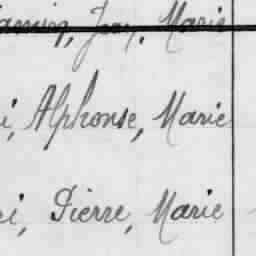 Jean, Marie
i, Alphonse, Marie
i, Pierre, Marie